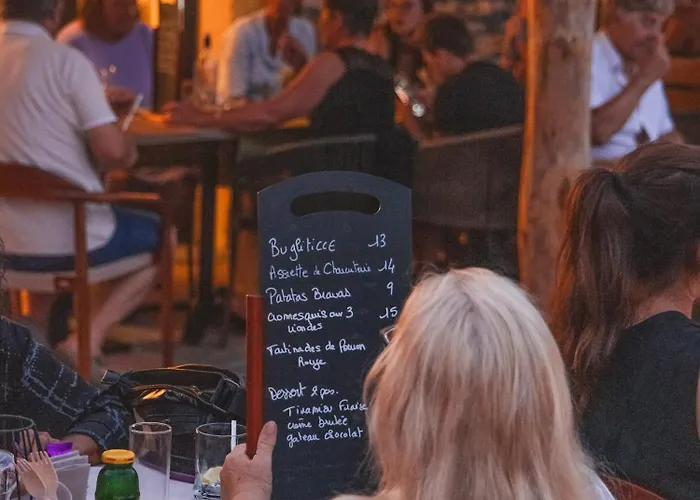 Bugliticce 13
Assiette de Charcuterie 14
Patatas Bravas 9
aux 3 15
viandes
Tartinades de Poivron
Rouge
Dessert 2 pers.
Tiramisu Fraise
crème brulée
gateau chocolat